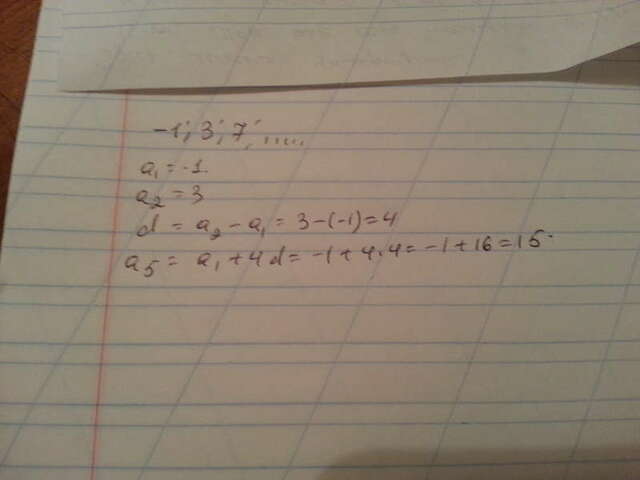 -1; 3; 7; .....
a₁ = -1.
a₂ = 3
d = a₂ - a₁ = 3 - (-1) = 4
a₅ = a₁ + 4d = -1 + 4·4 = -1 + 16 = 15.